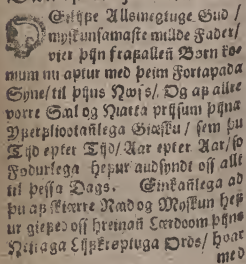 Eilijfe Allsmegtuge Gud /
myskunsamaste millde Fader /
vier þijn frafallen Børn ko-
mum nu aptur med þeim Fortapada
Syne / til þijns Nwss / Og af allre
vorre Sæl og Hiarta prijsum þijna
Yferfliotanlega Giæsku / sem þu
Tijd epter Tijd / Aar epter Aar / so
Fodurlega hefur audsyndt oss allt
til þessa Dags. Einkanlega ad
þu af skiærre Naad og Myskun hef-
ur giefed oss hreinan Lærdoom þijns
Heilaga Lijfskroptuga Ords / hvar
med